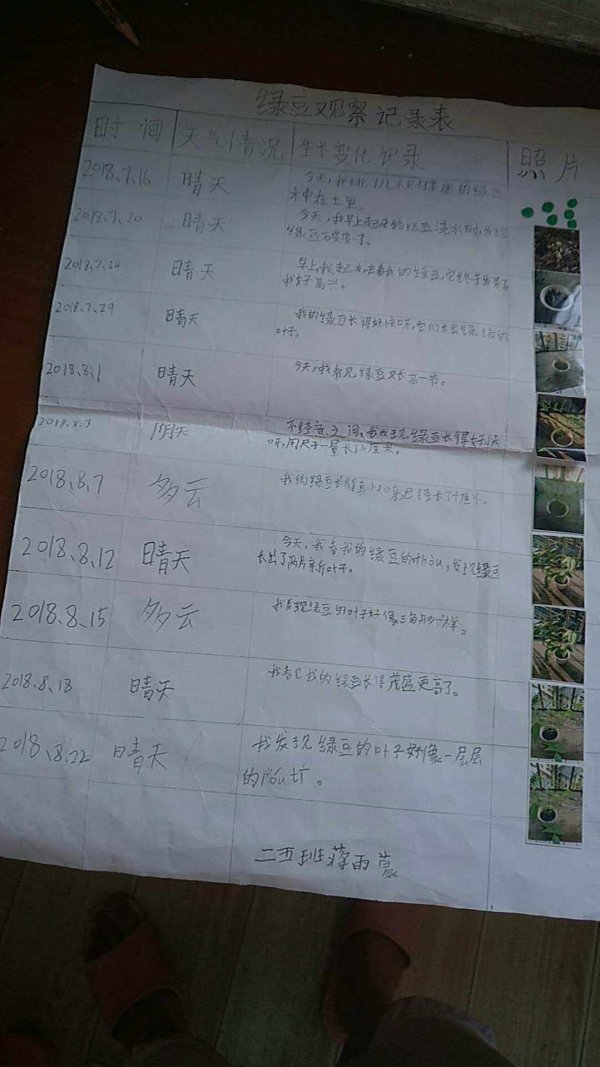 绿豆观察记录表
时间 天气情况 生长变化记录 照片
2018.7.16 晴天 今天,我 的绿豆
种在土里。
2018.7.20 晴天 今天,我早上起来给绿豆浇水时,发现
绿豆 了。
2018.7.24 晴天 早上,我起来去看我的绿豆,它终于发芽了
我好高兴。
2018.7.29 晴天 我的绿豆长得好快呀,它们长出绿绿的
叶子。
2018.8.1 晴天 今天,我看见绿豆又长高一节。
2018.8.3 阴天 不知道之间,我发现绿豆长得好快
呀,用尺子一量长了 厘米。
2018.8.7 多云 我的绿豆长得真 呀,已经长了 厘米。
2018.8.12 晴天 今天,我看我的绿豆的shí hòu,发现绿豆
长出了两片新叶子。
2018.8.15 多云 我发现绿豆的叶子好像三角形一样。
2018.8.18 晴天 我看见我的绿豆长得茂盛更高了。
2018.8.22 晴天 我发现绿豆的叶子好像一层层
的
二 班蒋雨蒙